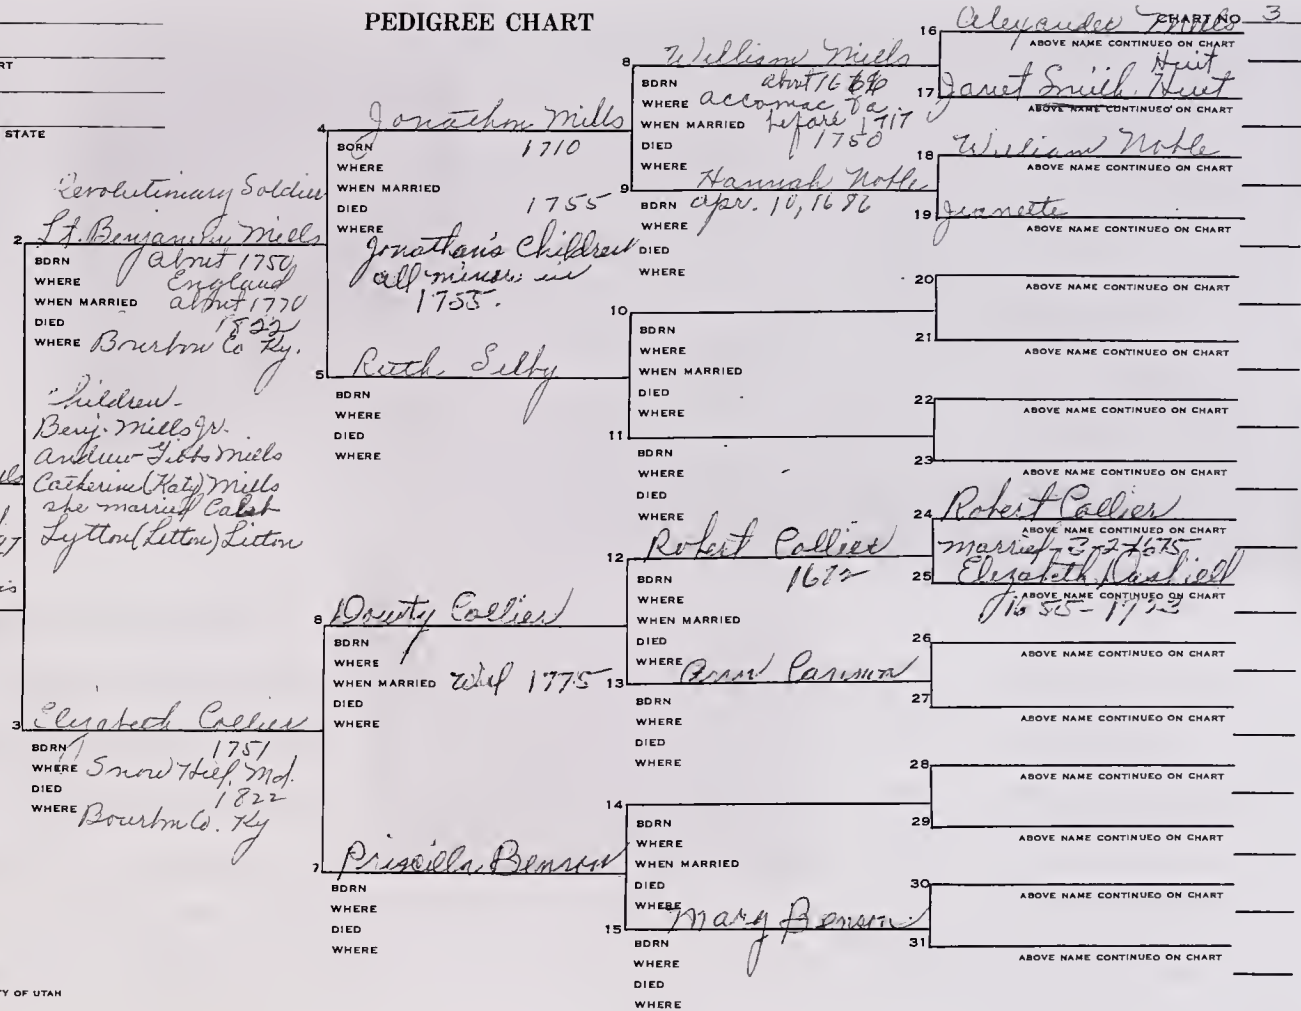 PEDIGREE CHART
CHART NO 3
RT
STATE
Revolutinary Soldier
2 Lt. Benjamin Mills
BDRN about 1750
WHERE England
WHEN MARRIED about 1770
DIED 1822
WHERE Bourbon Co Ky.
Children-
Benj. Mills Jr.
Andrew Gibbs Mills
Catherine (Katy) Mills
she married Caleb
Lytton (Letton) Litton
3 Elizabeth Collier
BDRN 1751
WHERE Snow Hill, Md.
DIED 1822
WHERE Bourbon Co. Ky
TY OF UTAH
4 Jonathon Mills
BORN 1710
WHERE
WHEN MARRIED
DIED 1755
WHERE
Jonathan's Children
all minors in
1755.
5 Ruth Selby
BDRN
WHERE
DIED
WHERE
8 Douty Collier
BDRN
WHERE
WHEN MARRIED Will 1775
DIED
WHERE
7 Priscilla Benson
BDRN
WHERE
DIED
WHERE
8 William Mills
BDRN about 16
WHERE Accomac, Va.
WHEN MARRIED before 1717
DIED 1750
WHERE
9 Hannah Noble
BDRN Apr. 10, 1686
WHERE
DIED
WHERE
10
BDRN
WHERE
WHEN MARRIED
DIED
WHERE
11
BDRN
WHERE
DIED
WHERE
12 Robert Collier
BDRN 1672
WHERE
WHEN MARRIED
DIED
WHERE
13 Ann
BDRN
WHERE
DIED
WHERE
14
BDRN
WHERE
WHEN MARRIED
DIED
WHERE
15 Mary Benson
BDRN
WHERE
DIED
WHERE
16 Alexander Mills
ABOVE NAME CONTINUEO ON CHART
Huit
17 Janet Smith Huit
ABOVE NAME CONTINUEO ON CHART
18 William Noble
ABOVE NAME CONTINUEO ON CHART
19 Jeanette
ABOVE NAME CONTINUEO ON CHART
20
ABOVE NAME CONTINUEO ON CHART
21
ABOVE NAME CONTINUEO ON CHART
22
ABOVE NAME CONTINUEO ON CHART
23
ABOVE NAME CONTINUEO ON CHART
24 Robert Collier
ABOVE NAME CONTINUED ON CHART
married-3-2-1675
25 Elizabeth Dashiell
ABOVE NAME CONTINUEO ON CHART
1655-1723
26
ABOVE NAME CONTINUEO ON CHART
27
ABOVE NAME CONTINUEO ON CHART
28
ABOVE NAME CONTINUEO ON CHART
29
ABOVE NAME CONTINUEO ON CHART
30
ABOVE NAME CONTINUEO ON CHART
31
ABOVE NAME CONTINUEO ON CHART